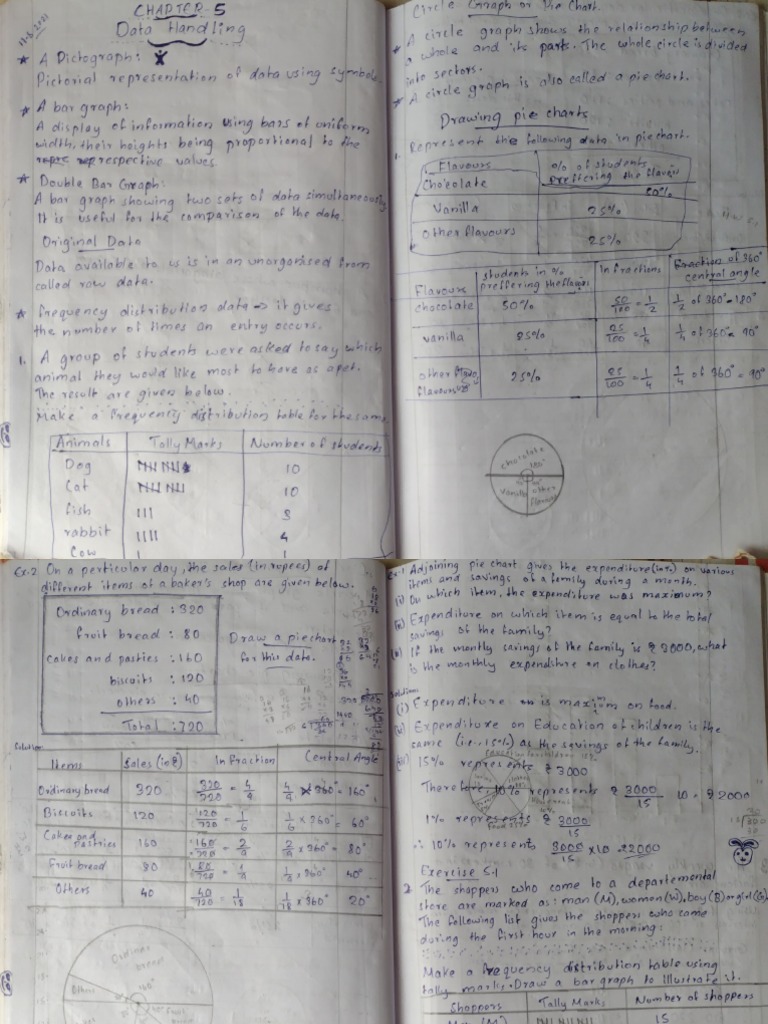 17.8.2021
CHAPTER-5
Data Handling
★ A Pictograph:
Pictorial representation of data using symbols.
★ A bar graph:
A display of information using bars of uniform
width, their heights being proportional to the
respective values.
★ Double Bar Graph:
A bar graph showing two sets of data simultaneously
It is useful for the comparison of the data.
Original Data
Data available to us is in an unorganised from
called row data.
★ frequency distribution data → it gives
the number of times an entry occurs.
1. A group of students were asked to say which
animal they would like most to have as a pet.
The result are given below.
Make a frequency distribution table for the same
Animals Tally Marks Number of students
Dog 10
Cat 10
fish 3
rabbit 4
Cow
Circle Graph or Pie Chart.
★ A circle graph shows the relationship between
a whole and its parts. The whole circle is divided
into sectors.
★ A circle graph is also called a pie chart.
Drawing pie charts
1. Represent the following data in pie chart.
Flavours % of students preffering the flavours
Chocolate 50%
Vanilla 25%
Other flavours 25%
Flavours students in % preffering the flavours In fractions Fraction of 360° central angle
chocolate 50% 50/100 = 1/2 1/2 of 360° = 180°
vanilla 25% 25/100 = 1/4 1/4 of 360° = 90°
other flavours 25% 25/100 = 1/4 1/4 of 360° = 90°
chocolate
180°
vanilla other flavours
Ex-2 On a perticular day, the sales (in rupees) of
different items of a baker's shop are given below.
Ordinary bread : 320
fruit bread : 80
cakes and pasties : 160
biscuits : 120
others : 40
Total : 720
Draw a pie chart
for this data.
Solution:
Items Sales (in ₹) In Fraction Central Angle
Ordinary bread 320 320/720 = 4/9 4/9 × 360° = 160°
Biscuits 120 120/720 = 1/6 1/6 × 360° = 60°
Cakes and pastries 160 160/720 = 2/9 2/9 × 360° = 80°
Fruit bread 80 80/720 = 1/9 1/9 × 360° = 40°
Others 40 40/720 = 1/18 1/18 × 360° 20°
Ordinary
bread
Others
Ex-1 Adjoining pie chart gives the expenditure (in %) on various
items and savings of a family during a month.
(i) On which item, the expenditure was maximum?
(ii) Expenditure on which item is equal to the total
savings of the family?
(iii) If the montly savings of the family is ₹ 3000, what
is the monthly expenditure on clothes?
Solution:
(i) Expenditure is maximum on food.
(ii) Expenditure on Education of children is the
same (i.e., 15%) as the savings of the family.
(iii) 15% represents ₹ 3000
Therefore, 10% represents ₹ 3000/15 10 = ₹ 2000
1% represents ₹ 3000/15
∴ 10% represents 3000/15 × 10 = ₹2000
Exercise 5.1
2. The shoppers who come to a departemental
store are marked as: man (M), women (W), boy (B) or girl (G).
The following list gives the shoppers who came
during the first hour in the morning:
Make a frequency distribution table using
tally marks. Draw a bar graph to illustrate it.
Shoppers Tally Marks Number of shoppers
Man (M) 15